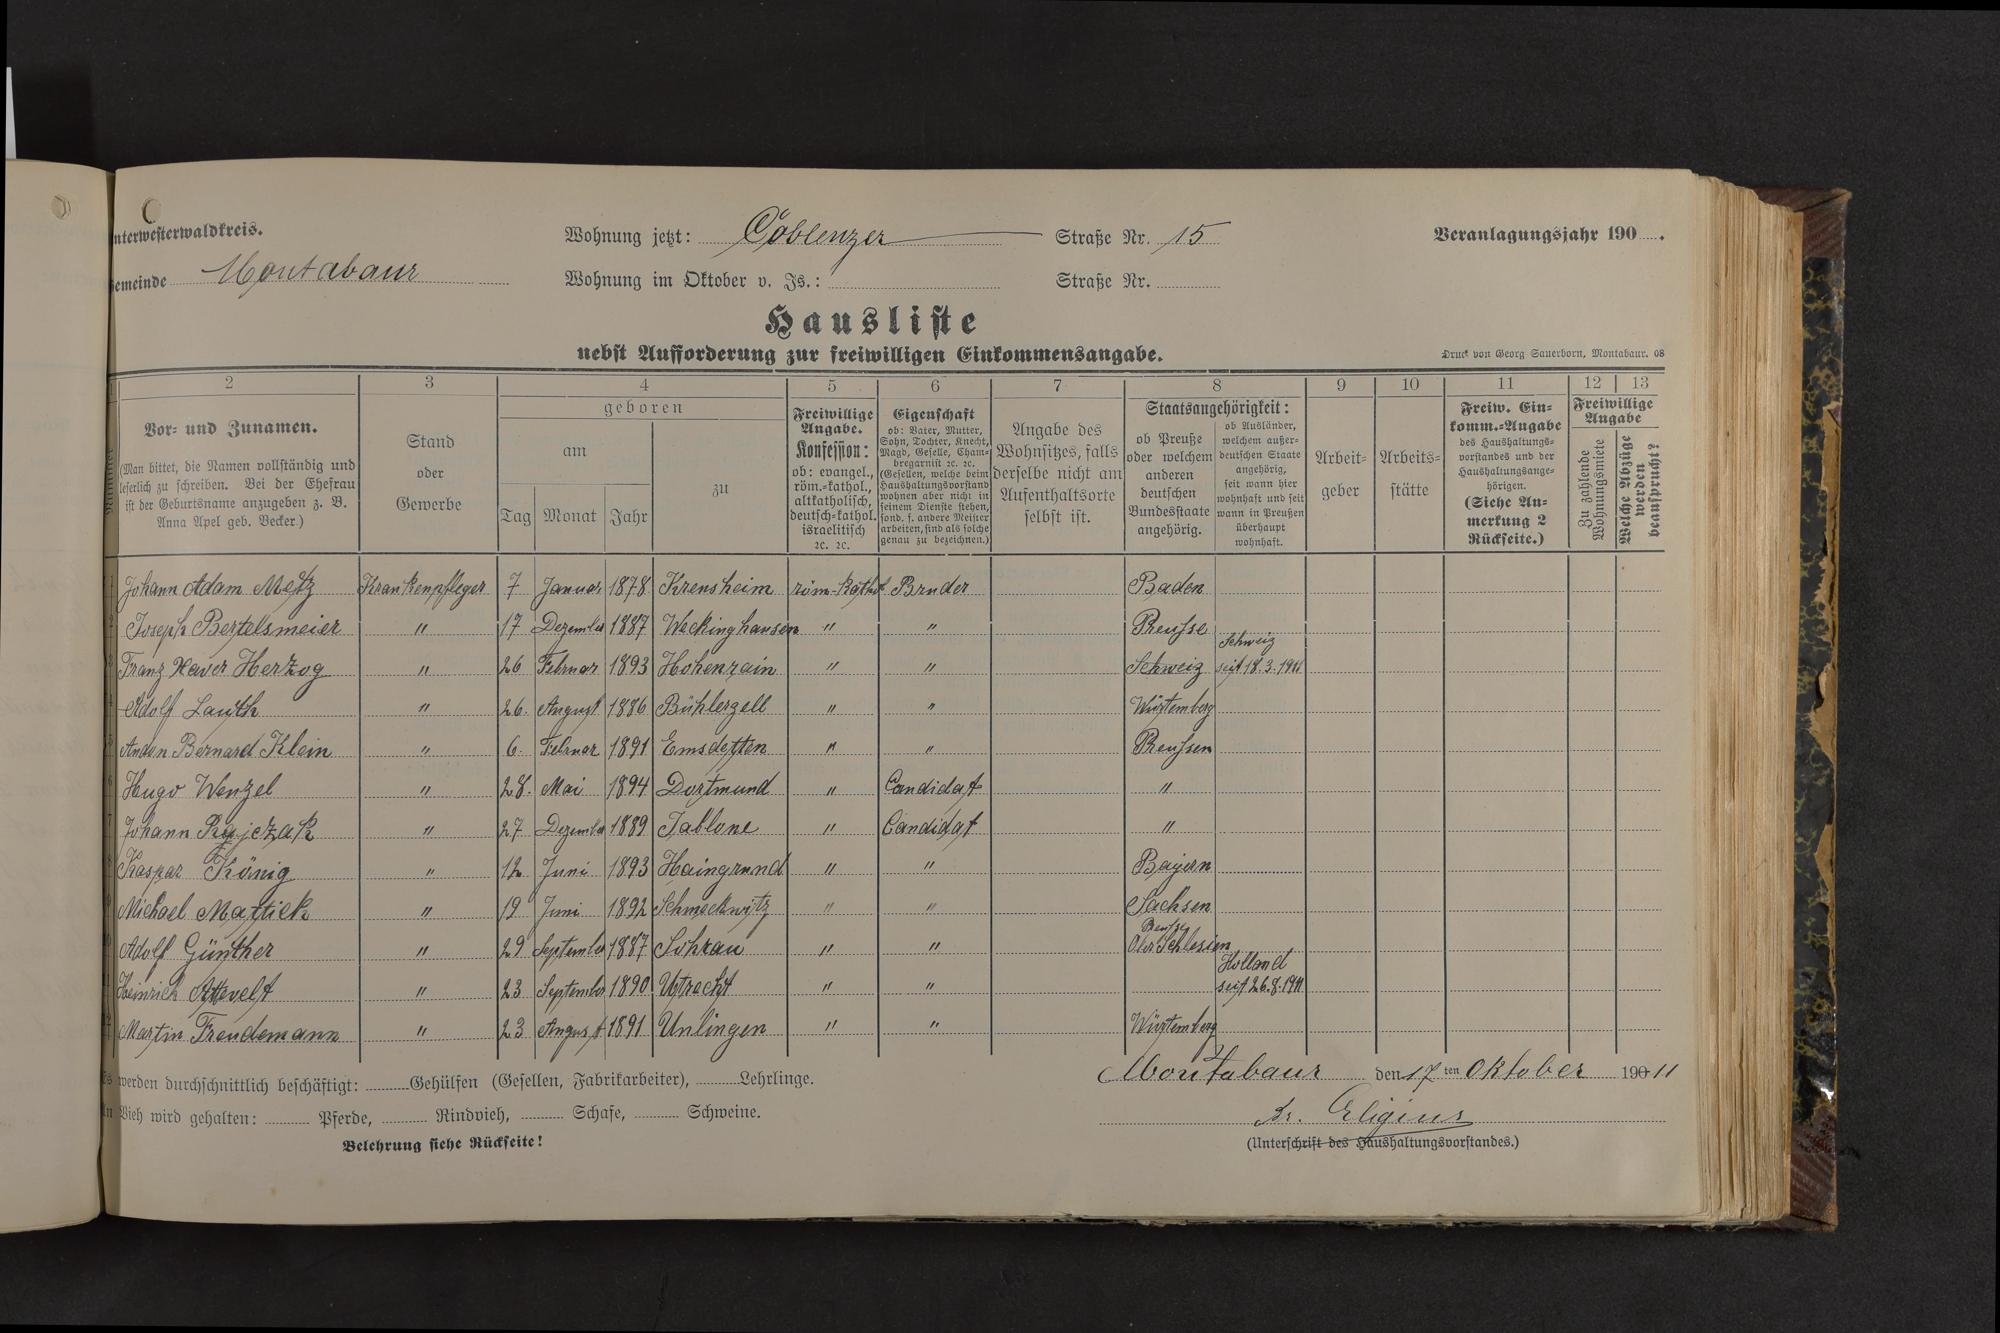 nterwesterwaldkreis.
Wohnung jetzt: Coblenzer Straße Nr. 15
Veranlagungsjahr 190 .
emeinde Montabaur
Wohnung im Oktober v. Js.: Straße Nr.
Hausliste
nebst Aufforderung zur freiwilligen Einkommensangabe.
Druck von Georg Sauerborn, Montabaur. 08
2 3 4 5 6 7 8 9 10 11 12 13
Vor- und Zunamen.
(Man bittet, die Namen vollständig und
leserlich zu schreiben. Bei der Ehefrau
ist der Geburtsname anzugeben z. B.
Anna Apel geb. Becker.)
Stand
oder
Gewerbe
geboren
am
Tag Monat Jahr
zu
Freiwillige
Angabe.
Konfession:
ob: evangel.,
röm.-kathol.,
altkatholisch,
deutsch-kathol.
israelitisch
ꝛc. ꝛc.
Eigenschaft
ob: Vater, Mutter,
Sohn, Tochter, Knecht,
Magd, Geselle, Cham-
bregarnist ꝛc. ꝛc.
(Gesellen, welche beim
Haushaltungsvorstand
wohnen aber nicht in
seinem Dienste stehen,
sond. f. andere Meister
arbeiten, sind als solche
genau zu bezeichnen.)
Angabe des
Wohnsitzes, falls
derselbe nicht am
Aufenthaltsorte
selbst ist.
Staatsangehörigkeit:
ob Preuße
oder welchem
anderen
deutschen
Bundesstaate
angehörig.
ob Ausländer,
welchem außer-
deutschen Staate
angehörig,
seit wann hier
wohnhaft und seit
wann in Preußen
überhaupt
wohnhaft.
Arbeit-
geber
Arbeits-
stätte
Freiw. Ein-
komm.-Angabe
des Haushaltungs-
vorstandes und der
Haushaltungsange-
hörigen.
(Siehe An-
merkung 2
Rückseite.)
Freiwillige
Angabe
Zu zahlende
Wohnungsmiete
Welche Abzüge
werden
beansprucht?
Johann Adam Metz Krankenpfleger 7 Januar 1878 Krensheim röm-kathol Bruder Baden
Joseph Bertelsmeier " 17 Dezember 1887 Weckinghausen " " Preusse
Franz Xaver Herzog " 26 Februar 1893 Hohenrain " " Schweiz Schweiz seit 18.3.1911
Adolf Lauth " 26. August 1886 Bühlerzell " " Würtemberg
Anden Bernard Klein " 6. Februar 1891 Emsdetten " " Preussen
Hugo Wenzel " 28. Mai 1894 Dortmund " Candidat "
Johann " 27 Dezember 1889 Jablone " Candidat "
Kaspar König " 12 Juni 1893 Haingrund " " Bayern
Michael Mattick " 19 Juni 1892 Schmeckwitz " " Sachsen
Adolf Günther " 29 September 1887 Sohrau " " Preusse Ober Schlesien
Heinrich Attevelt " 23 September 1890 Utrecht " " Holland seit 26.8.1911
Martin Freudemann " 23 August 1891 Unlingen " " Würtemberg
Es werden durchschnittlich beschäftigt: Gehülfen (Gesellen, Fabrikarbeiter), Lehrlinge.
Montabaur den 17 ten Oktober 190 11
An Vieh wird gehalten: Pferde, Rindvieh, Schafe, Schweine.
Br. Eligius
Belehrung siehe Rückseite!
(Unterschrift des Haushaltungsvorstandes.)